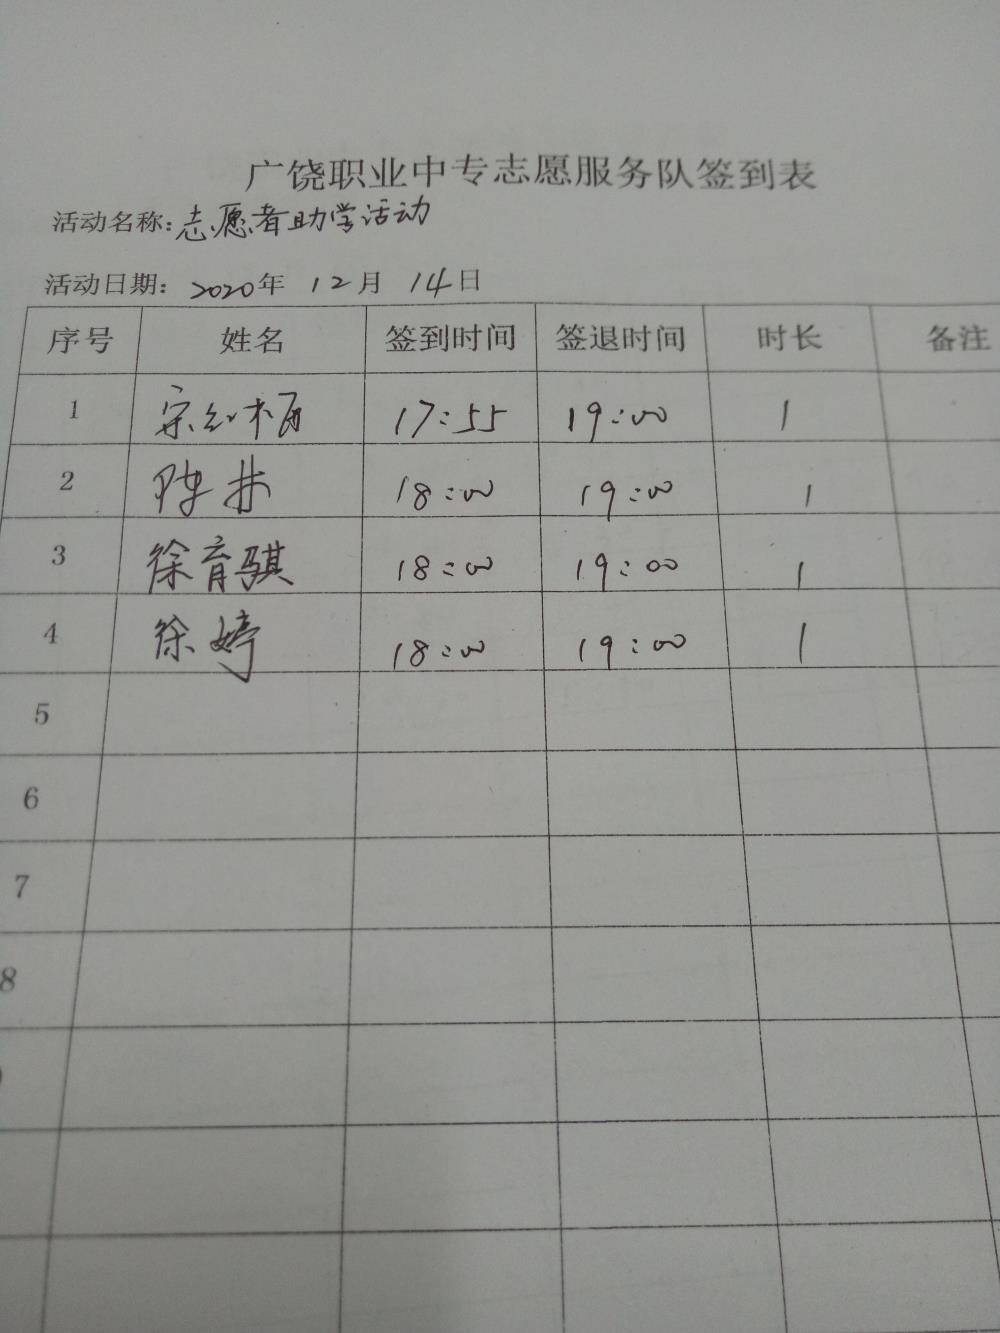 广饶职业中专志愿服务队签到表
活动名称:志愿者助学活动
活动日期: 2020年 12月 14日
序号 姓名 签到时间 签退时间 时长 备注
1 宋红梅 17:55 19:00 1
2 18:00 19:00 1
3 徐育骐 18:00 19:00 1
4 徐婷 18:00 19:00 1
5
6
7
8